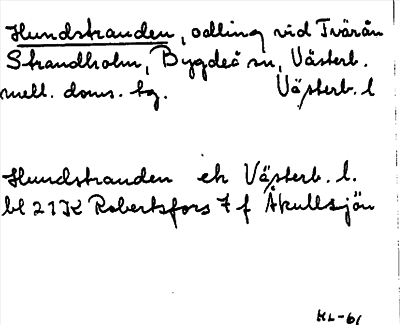 Hundstranden, odling vid Tvärån
Strandholm, Bygdeå sn, Västerb.
mell. doms. hg. Västerb. l
Hundstranden ek Västerb. l.
bl 21K Robertsfors 7 f Åkullsjön
KL-61